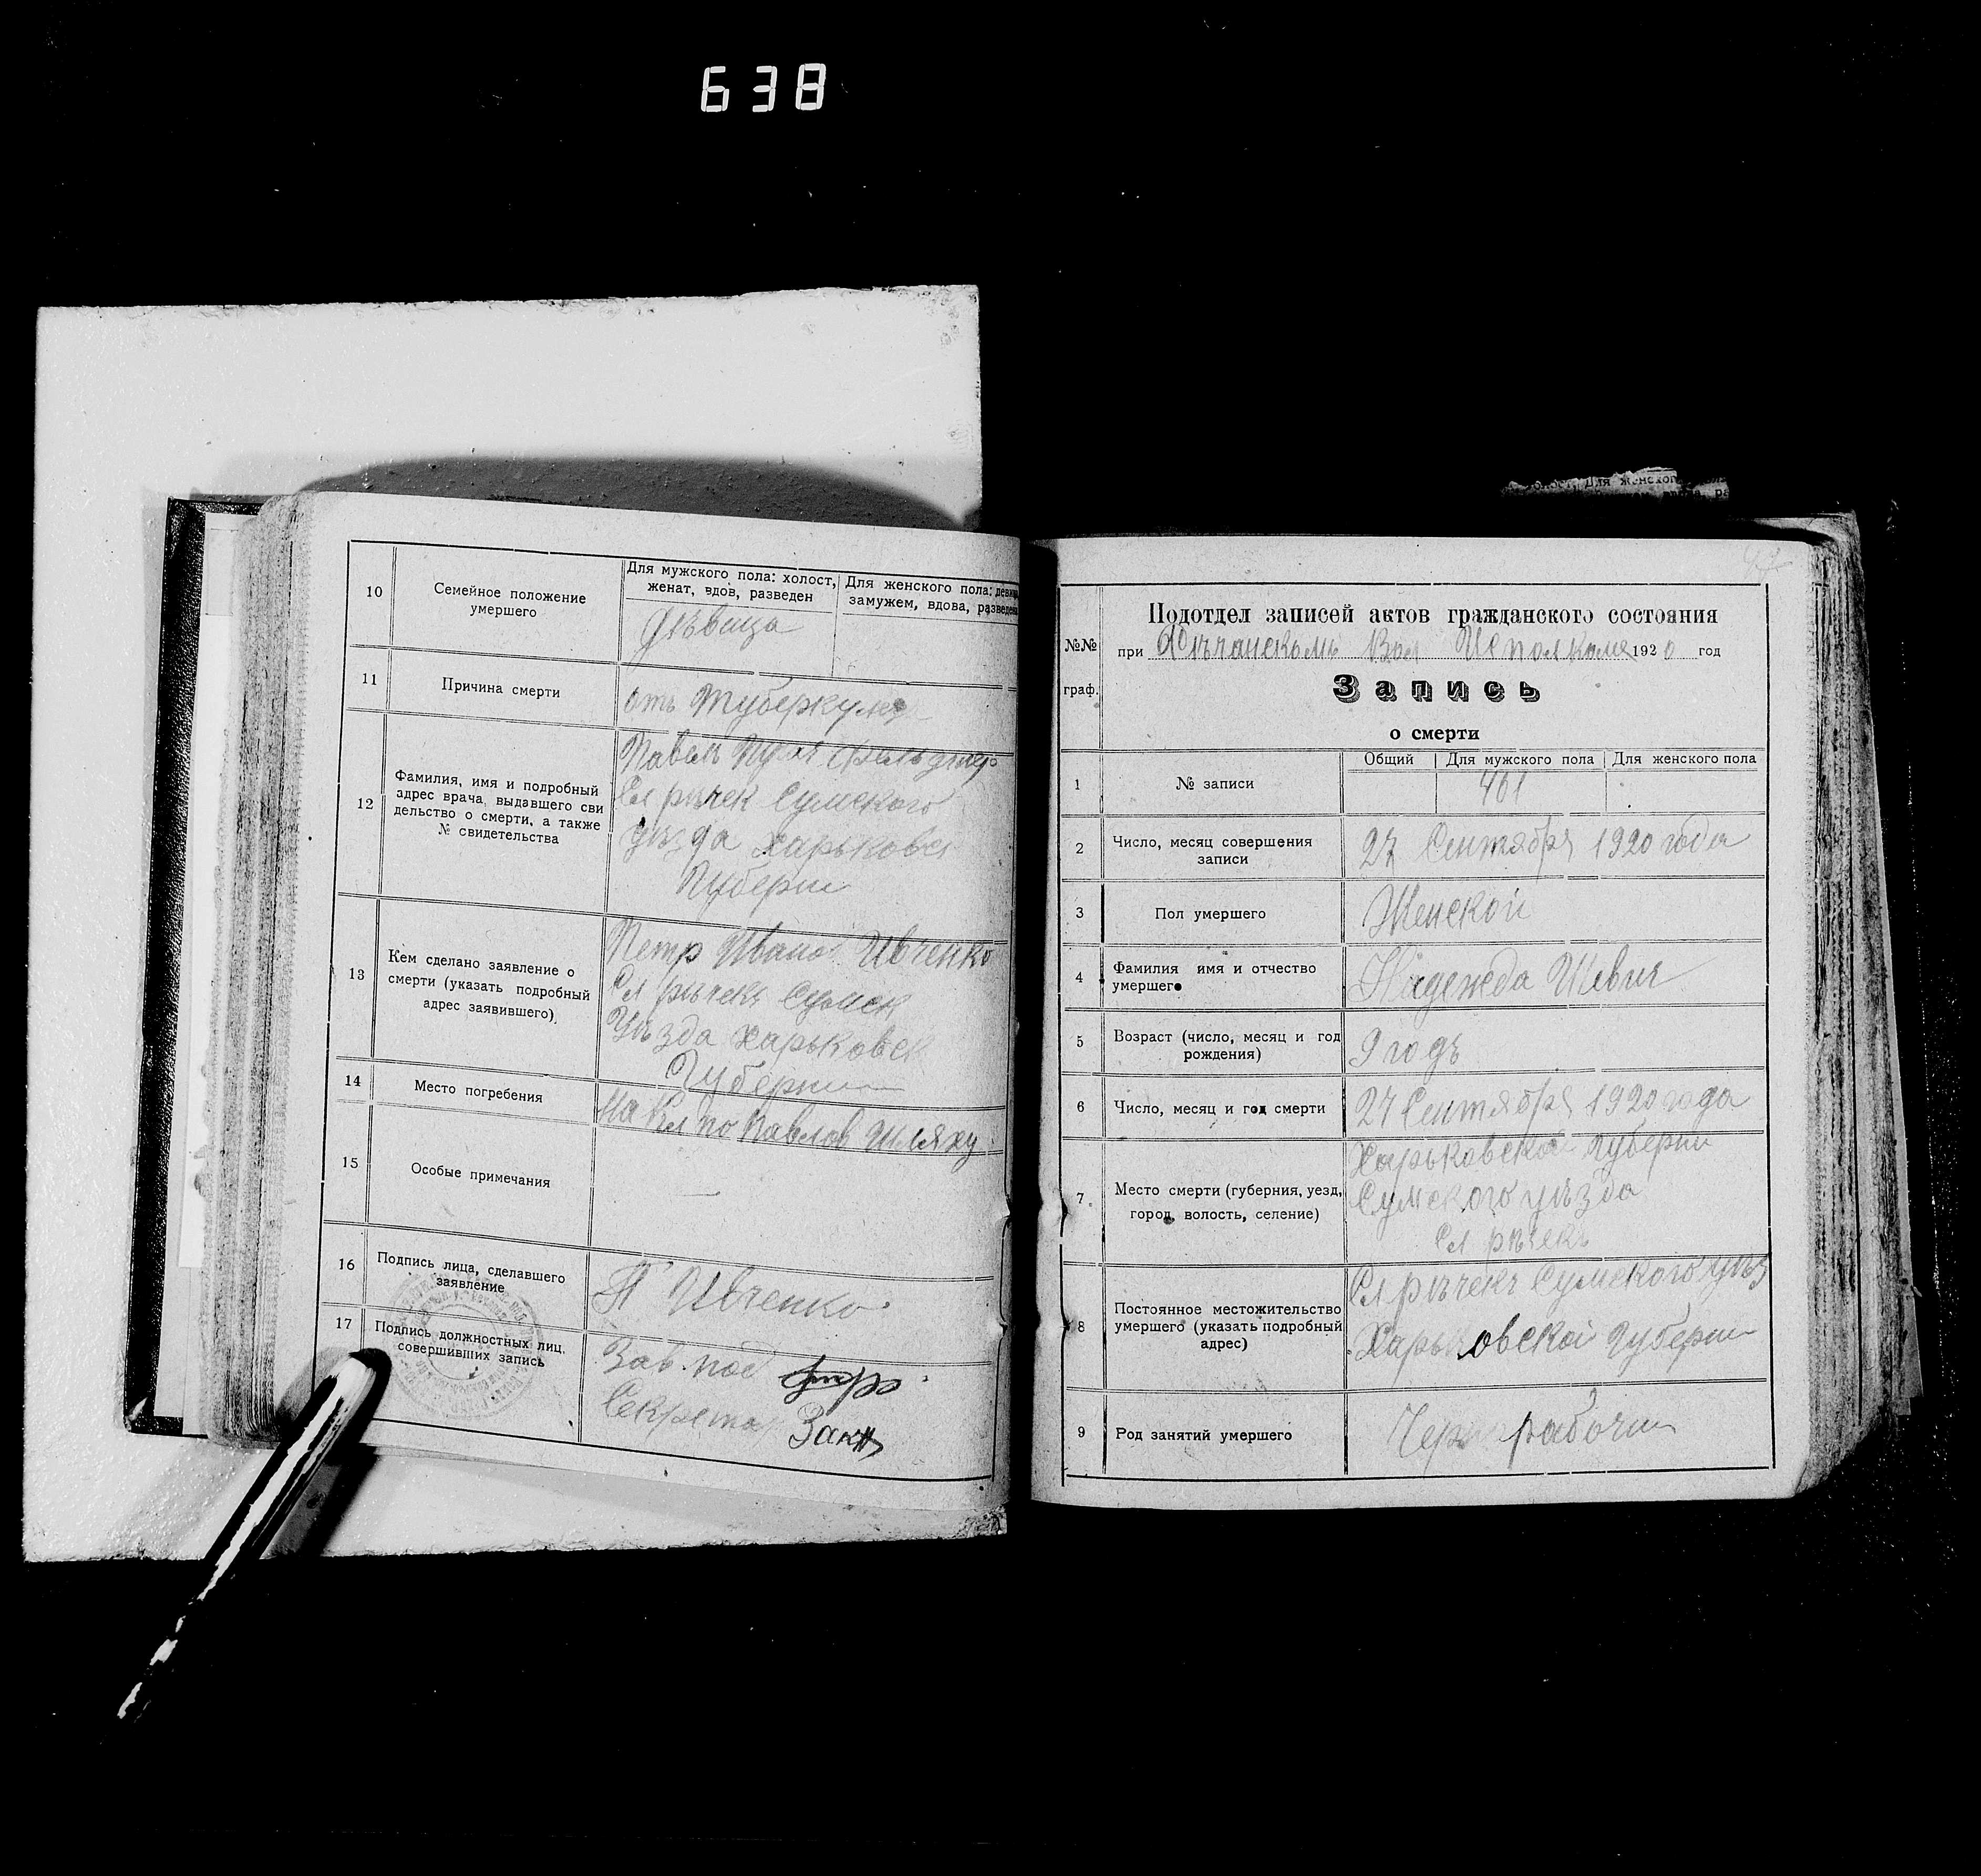 638
10
Семейное положение
умершего
Для мужского пола: холост,
женат, вдов, разведен
Для женского пола: девица
замужем, вдова, разведена
Дѣвица
11
Причина смерти
отъ туберкулез
12
Фамилия, имя и подробный
адрес врача, выдавшего сви
дельство о смерти, а также
№ свидетельства
Павелъ фельдшер
Сл рѣчек Сумского
уѣзда Харьковск
Губерни
13
Кем сделано заявление о
смерти (указать подробный
адрес заявившего)
Петр Ивано Ивченко
Сл рѣчекъ Сумск
Уѣзда Харьковск
Губернии
14
Место погребения
На Кл по Павлов Шляху
15
Особые примечания
—
16
Подпись лица, сделавшего
заявление
П Ивченко
17
Подпись должностных лиц,
совершивших запись
Зав. под
Секретар
№№
граф.
Подотдел записей актов гражданского состояния
при Рѣчанскомъ Вол Исполкоме 1920 год
Запись
о смерти
1
№ записи
Общий
Для мужского пола
Для женского пола
461
2
Число, месяц совершения
записи
27 Сентября 1920 года
3
Пол умершего
Женской
4
Фамилия имя и отчество
умершего
Надежда Шевич
5
Возраст (число, месяц и год
рождения)
9 годъ
6
Число, месяц и год смерти
27 Сентября 1920 года
7
Место смерти (губерния, уезд,
город, волость, селение)
Харьковской Губерни
Сумского уѣзда
Сл рѣчекъ
8
Постоянное местожительство
умершего (указать подробный
адрес)
Сл рѣчекъ Сумского Уѣз
Харьковской Губерни
9
Род занятий умершего
Черн рабочи